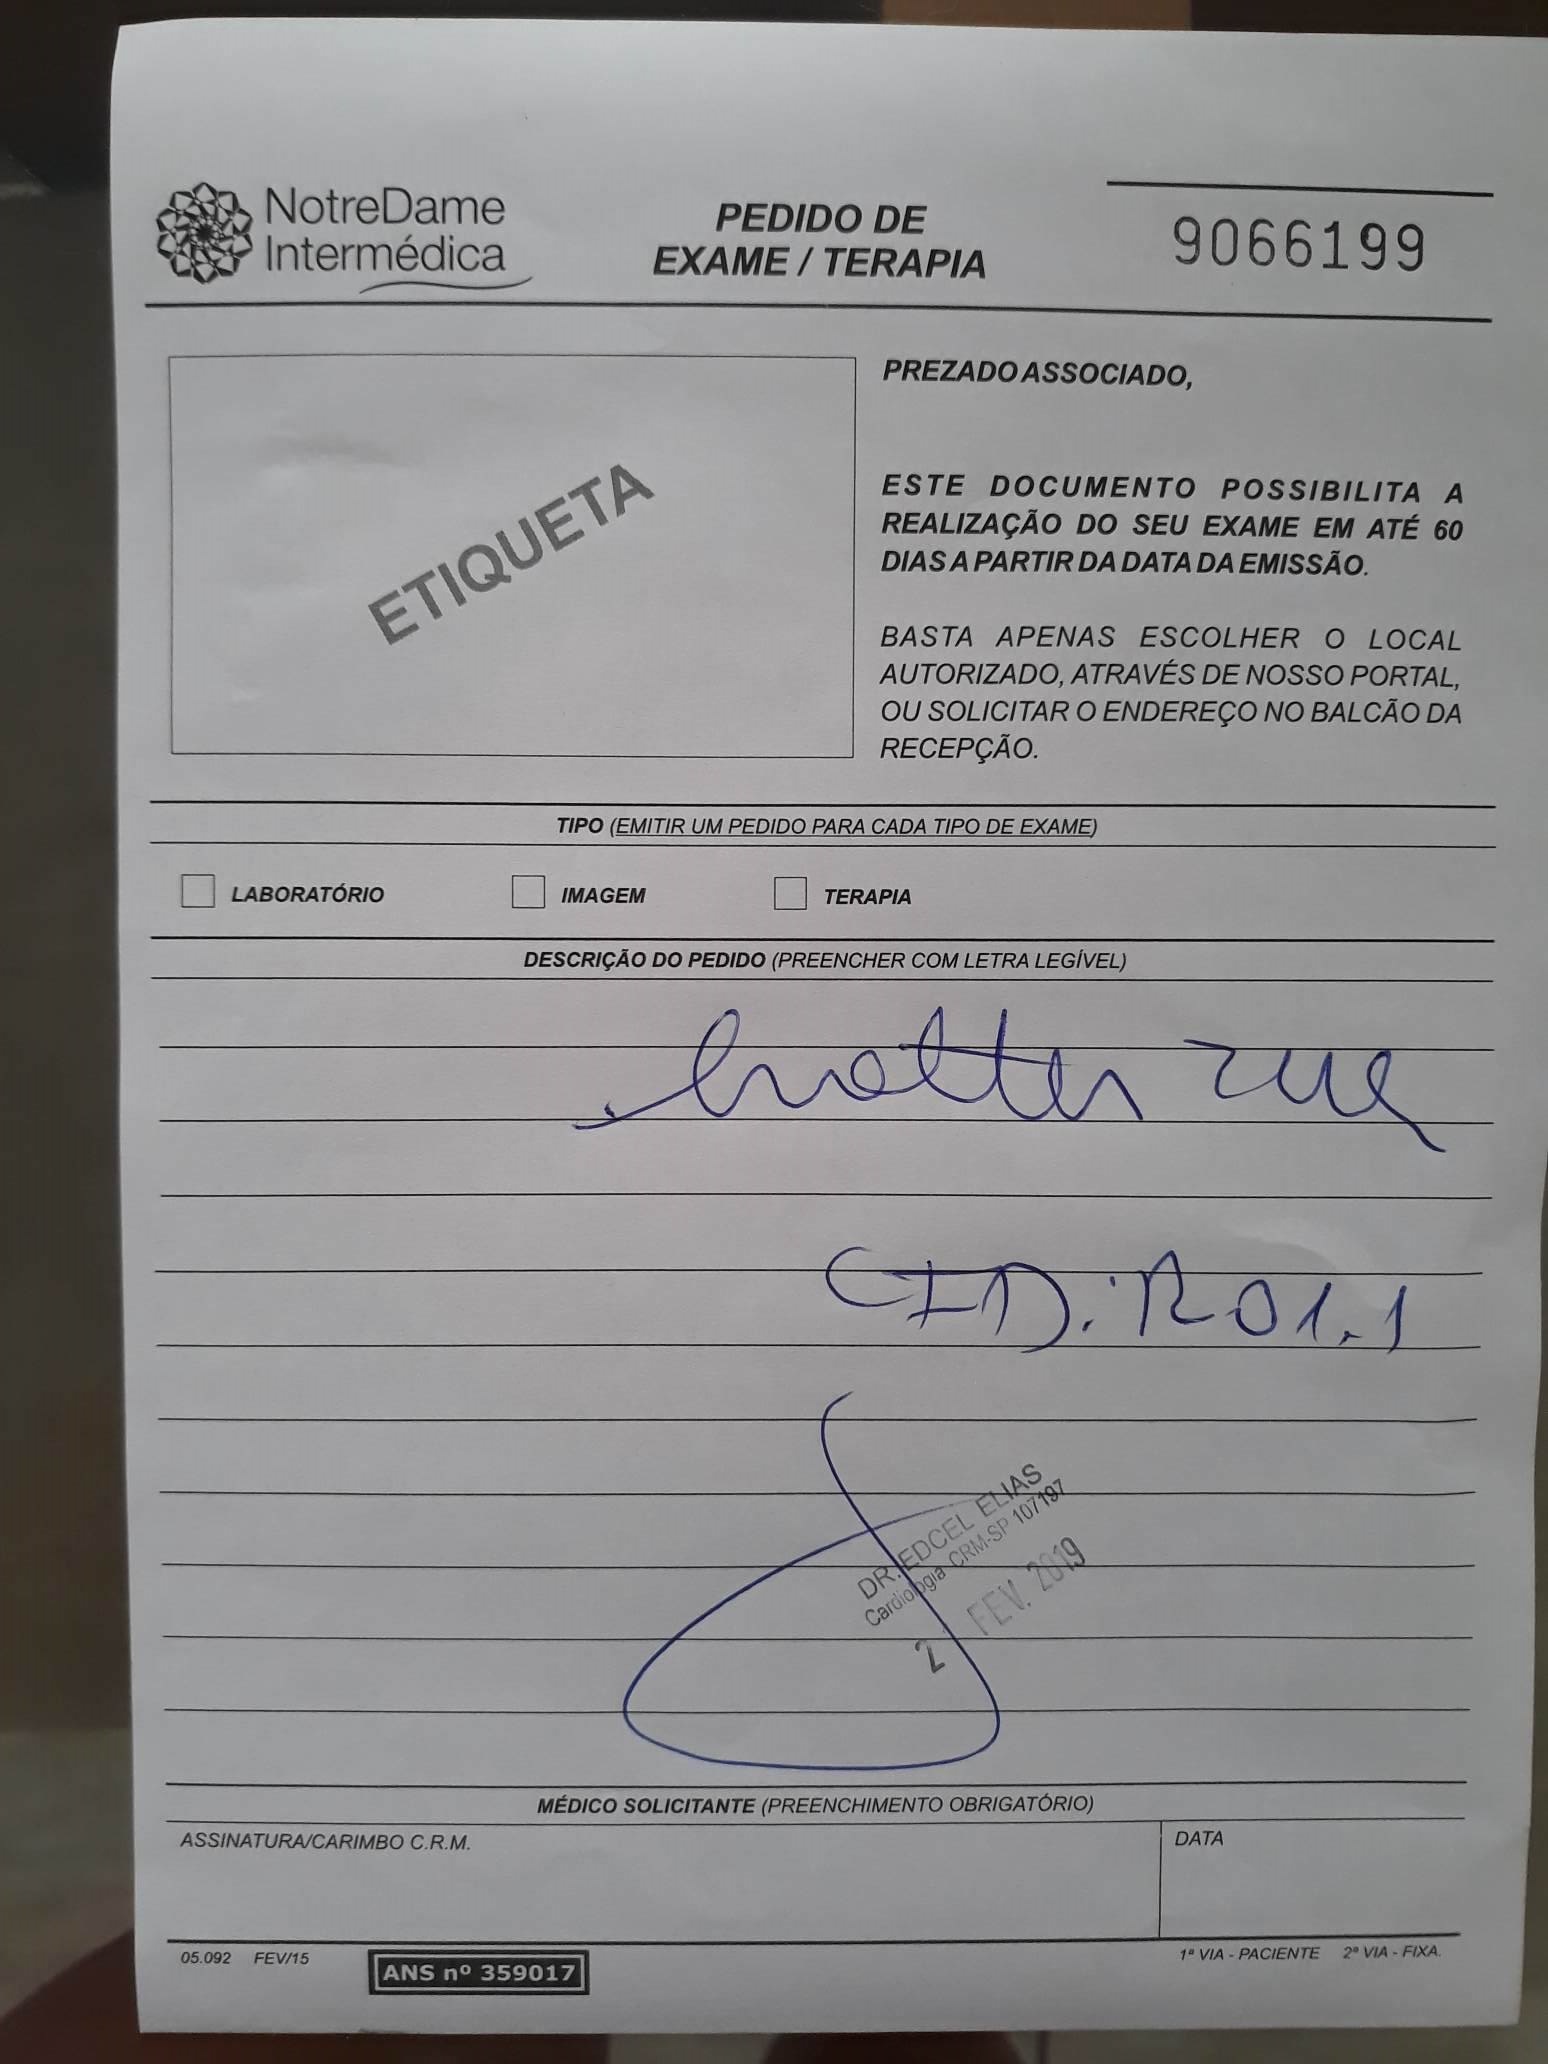 NotreDame
Intermédica
PEDIDO DE
EXAME / TERAPIA
9066199
ETIQUETA
PREZADO ASSOCIADO,
ESTE DOCUMENTO POSSIBILITA A
REALIZAÇÃO DO SEU EXAME EM ATÉ 60
DIAS A PARTIR DA DATA DA EMISSÃO.
BASTA APENAS ESCOLHER O LOCAL
AUTORIZADO, ATRAVÉS DE NOSSO PORTAL,
OU SOLICITAR O ENDEREÇO NO BALCÃO DA
RECEPÇÃO.
TIPO (EMITIR UM PEDIDO PARA CADA TIPO DE EXAME)
LABORATÓRIO IMAGEM TERAPIA
DESCRIÇÃO DO PEDIDO (PREENCHER COM LETRA LEGÍVEL)
CID: R01.1
DR. EDCEL ELIAS
Cardiologia-CRM-SP 107197
2 FEV. 2019
MÉDICO SOLICITANTE (PREENCHIMENTO OBRIGATÓRIO)
ASSINATURA/CARIMBO C.R.M. DATA
05.092 FEV/15
ANS nº 359017
1ª VIA - PACIENTE 2ª VIA - FIXA.